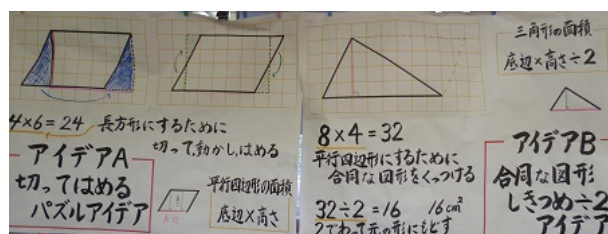 4×6=24 長方形にするために
切って、動かし、はめる
アイデアA
切ってはめる
パズルアイデア
平行四辺形の面積
底辺×高さ
8×4=32
平行四辺形にするために
合同な図形をくっつける
32÷2=16 16cm²
2でわって元の形にもどす
三角形の面積
底辺×高さ÷2
アイデアB
合同な図形
しきつめ÷2
アイデア